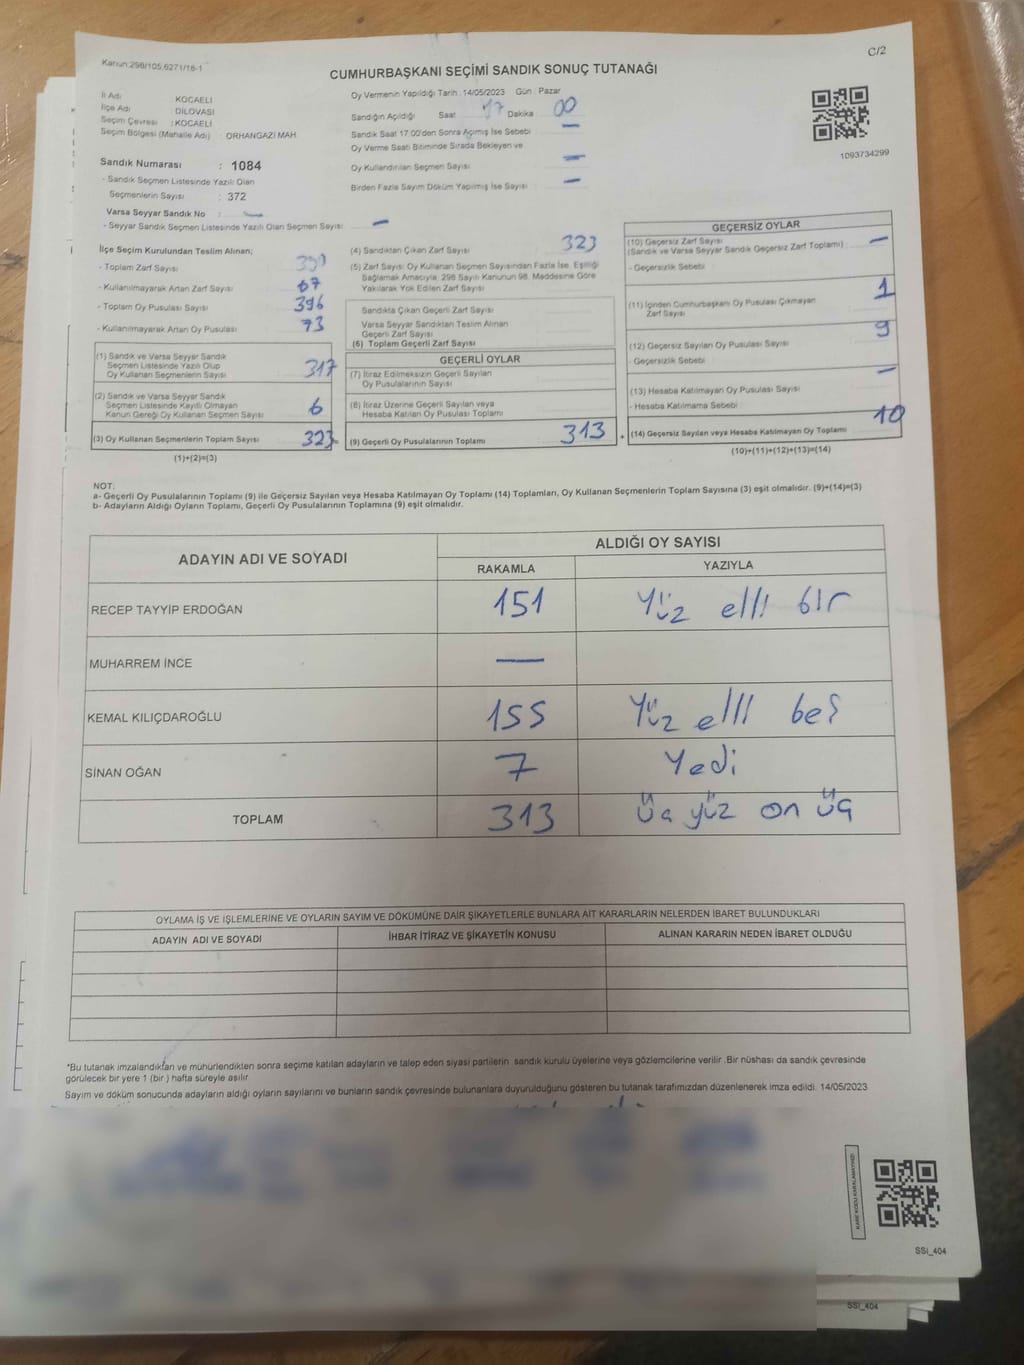 Kanun:298/105,6271/18-1
C/2
CUMHURBAŞKANI SEÇİMİ SANDIK SONUÇ TUTANAĞI
İl Adı : KOCAELİ
İlçe Adı : DİLOVASI
Seçim Çevresi : KOCAELİ
Seçim Bölgesi (Mahalle Adı) : ORHANGAZİ MAH
Sandık Numarası : 1084
- Sandık Seçmen Listesinde Yazılı Olan
Seçmenlerin Sayısı : 372
Varsa Seyyar Sandık No : —
- Seyyar Sandık Seçmen Listesinde Yazılı Olan Seçmen Sayısı: —
Oy Vermenin Yapıldığı Tarih : 14/05/2023 Gün : Pazar
Sandığın Açıldığı Saat 17 Dakika 00
Sandık Saat 17.00'den Sonra Açımış İse Sebebi —
Oy Verme Saati Bitiminde Sırada Bekleyen ve
Oy Kullandırılan Seçmen Sayısı —
Birden Fazla Sayım Döküm Yapılmış İse Sayısı —
1093734299
İlçe Seçim Kurulundan Teslim Alınan:
- Toplam Zarf Sayısı
- Kullanılmayarak Artan Zarf Sayısı 67
- Toplam Oy Pusulası Sayısı 396
- Kullanılmayarak Artan Oy Pusulası 73
(1) Sandık ve Varsa Seyyar Sandık
Seçmen Listesinde Yazılı Olup
Oy Kullanan Seçmenlerin Sayısı 317
(2) Sandık ve Varsa Seyyar Sandık
Seçmen Listesinde Kayıtlı Olmayan
Kanun Gereği Oy Kullanan Seçmen Sayısı 6
(3) Oy Kullanan Seçmenlerin Toplam Sayısı 323
(1)+(2)=(3)
(4) Sandıktan Çıkan Zarf Sayısı 323
(5) Zarf Sayısı Oy Kullanan Seçmen Sayısından Fazla İse, Eşitliği
Sağlamak Amacıyla, 298 Sayılı Kanunun 98. Maddesine Göre
Yakılarak Yok Edilen Zarf Sayısı
Sandıkta Çıkan Geçerli Zarf Sayısı
Varsa Seyyar Sandıktan Teslim Alınan
Geçerli Zarf Sayısı
(6) Toplam Geçerli Zarf Sayısı
GEÇERLİ OYLAR
(7) İtiraz Edilmeksizin Geçerli Sayılan
Oy Pusulalarının Sayısı
(8) İtiraz Üzerine Geçerli Sayılan veya
Hesaba Katılan Oy Pusulası Toplamı
= (9) Geçerli Oy Pusulalarının Toplamı 313
GEÇERSİZ OYLAR
(10) Geçersiz Zarf Sayısı
(Sandık ve Varsa Seyyar Sandık Geçersiz Zarf Toplamı) —
- Geçersizlik Sebebi
(11) İçinden Cumhurbaşkanı Oy Pusulası Çıkmayan
Zarf Sayısı 1
(12) Geçersiz Sayılan Oy Pusulası Sayısı 9
- Geçersizlik Sebebi
(13) Hesaba Katılmayan Oy Pusulası Sayısı —
- Hesaba Katılmama Sebebi
+ (14) Geçersiz Sayılan veya Hesaba Katılmayan Oy Toplamı 10
(10)+(11)+(12)+(13)=(14)
NOT:
a- Geçerli Oy Pusulalarının Toplamı (9) ile Geçersiz Sayılan veya Hesaba Katılmayan Oy Toplamı (14) Toplamları, Oy Kullanan Seçmenlerin Toplam Sayısına (3) eşit olmalıdır. (9)+(14)=(3)
b- Adayların Aldığı Oyların Toplamı, Geçerli Oy Pusulalarının Toplamına (9) eşit olmalıdır.
ADAYIN ADI VE SOYADI
ALDIĞI OY SAYISI
RAKAMLA YAZIYLA
RECEP TAYYİP ERDOĞAN 151 Yüz elli bir
MUHARREM İNCE —
KEMAL KILIÇDAROĞLU 155 Yüz elli beş
SİNAN OĞAN 7 Yedi
TOPLAM 313 üç yüz on üç
OYLAMA İŞ VE İŞLEMLERİNE VE OYLARIN SAYIM VE DÖKÜMÜNE DAİR ŞİKAYETLERLE BUNLARA AİT KARARLARIN NELERDEN İBARET BULUNDUKLARI
ADAYIN ADI VE SOYADI İHBAR İTİRAZ VE ŞİKAYETİN KONUSU ALINAN KARARIN NEDEN İBARET OLDUĞU
*Bu tutanak imzalandıktan ve mühürlendikten sonra seçime katılan adayların ve talep eden siyasi partilerin sandık kurulu üyelerine veya gözlemcilerine verilir .Bir nüshası da sandık çevresinde
görülecek bir yere 1 (bir ) hafta süreyle asılır
Sayım ve döküm sonucunda adayların aldığı oyların sayılarını ve bunların sandık çevresinde bulunanlara duyurulduğunu gösteren bu tutanak tarafımızdan düzenlenerek imza edildi. 14/05/2023
KARE KODU KARALAMAYINIZ!
SSİ_404
SSİ_404